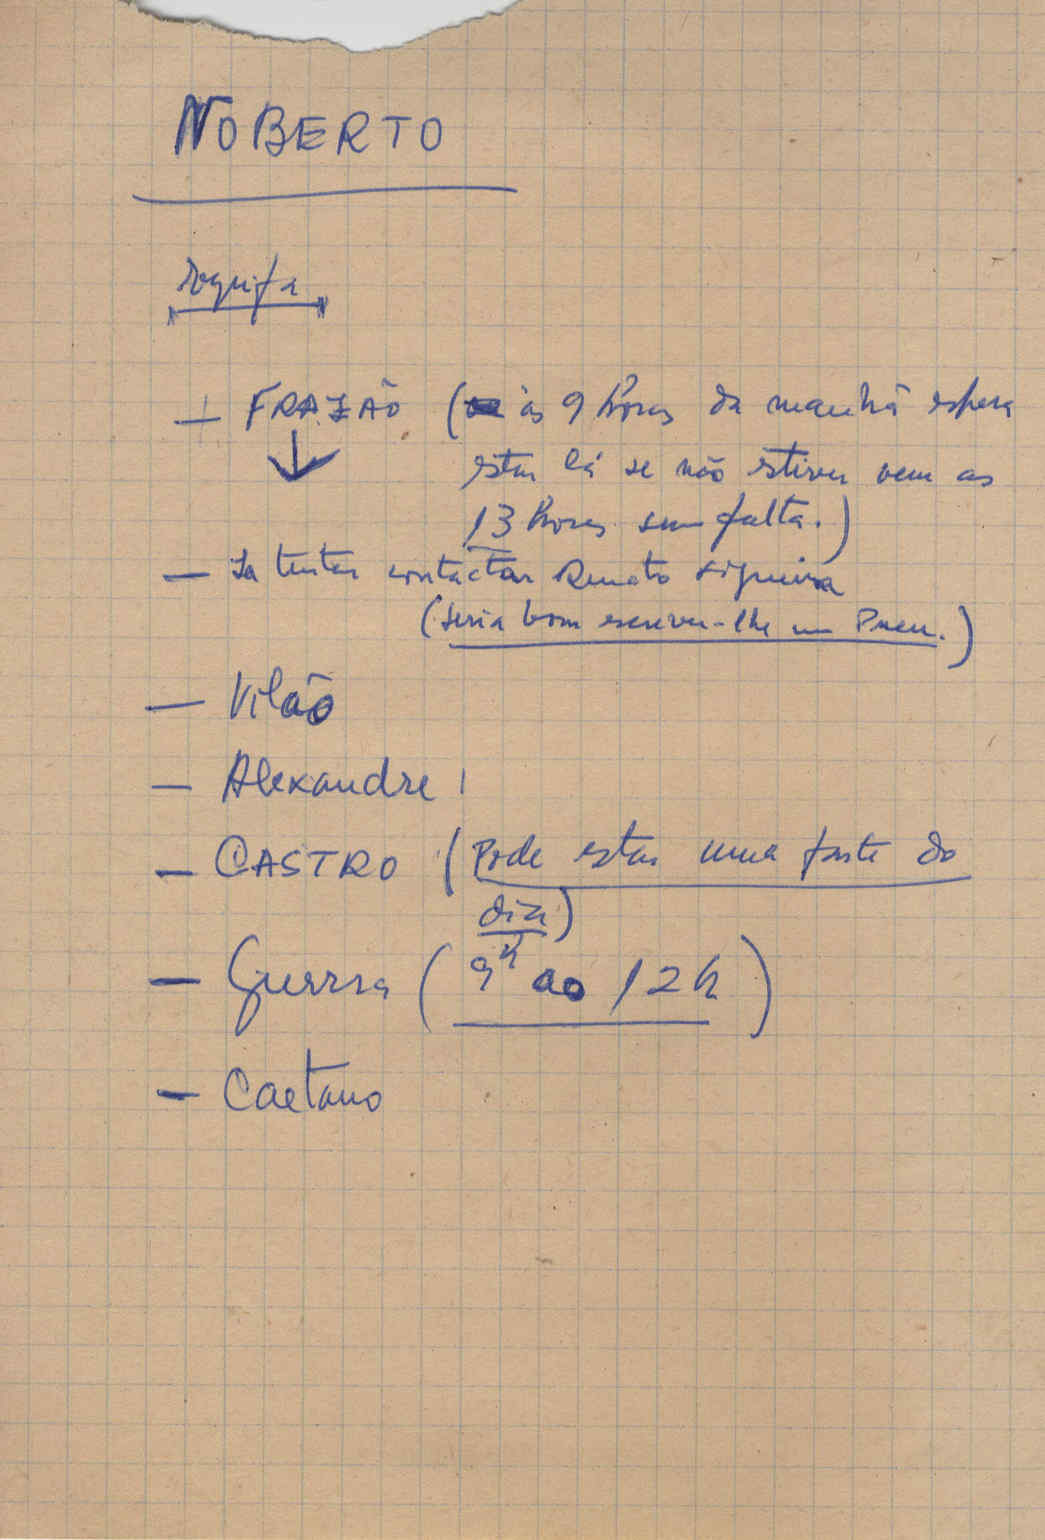 NOBERTO
— FRAZÃO ( às 9 horas da manhã espera
estar lá se não estiver vem as
13 horas sem falta.)
— Ia tentar contactar Renato Siqueira
(seria bom escrever-lhe um Pneu.)
— Vilão
— Alexandre !
— CASTRO (Pode estar uma parte do
dia)
— Guerra ( 9h ao 12h )
— Caetano